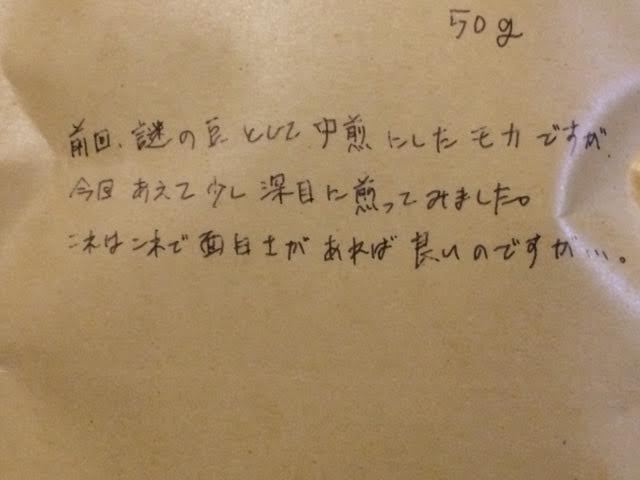 50g
前回、謎の豆として中煎にしたモカですが、
今回あえて少し深目に煎ってみました。
これはこれで面白さがあれば良いのですが…。